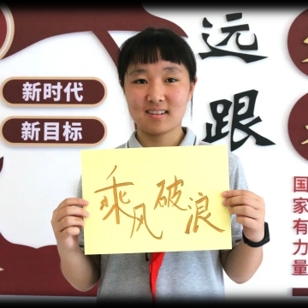 新时代
新目标
远
跟
乘风破浪
国
家
有
力
量